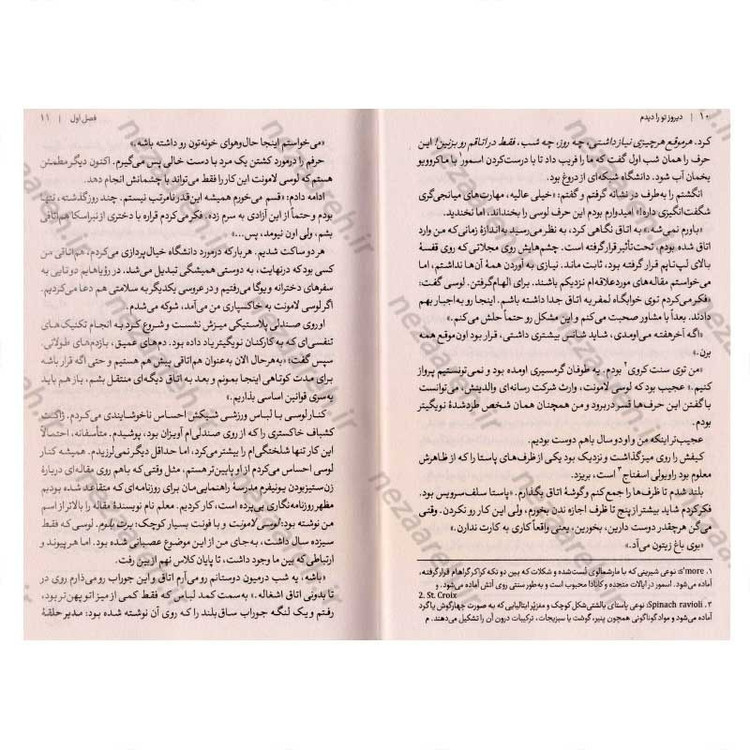 ۱۰ | دیروز تو را دیدم
کرد. هرموقع هرچیزی نیاز داشتی، چه روز، چه شب، فقط در اتاقم رو بزنین! این
حرف را همان شب اول گفت که ما را فریب داد تا با درست‌کردن اسمور۱ با ماکروویو
یخمان آب شود. دانشگاه شبکه‌ای از دروغ بود.
انگشتم را به‌طرف در نشانه گرفتم و گفتم: «خیلی عالیه، مهارت‌های میانجی‌گری
شگفت‌انگیزی داره!» امیدوارم بودم این حرف لوسی را بخنداند، اما نخندید.
«باورم نمی‌شه.» به اتاق نگاهی کرد، به نظر می‌رسید به اندازهٔ زمانی که من وارد
اتاق شده بودم، تحت‌تأثیر قرار گرفته است. چشم‌هایش روی مجلاتی که روی قفسهٔ
بالای لپ‌تاپم قرار گرفته بود، ثابت ماند. نیازی به آوردن همهٔ آن‌ها نداشتم، اما
می‌خواستم مقاله‌های موردعلاقه‌ام نزدیکم باشند. برای الهام‌گرفتن. لوسی گفت:
«فکر می‌کردم توی خوابگاه لمفریه اتاق جدا داشته باشم. اینجا رو به‌اجبار بهم
دادند. بعداً با مشاور صحبت می‌کنم و این مشکل رو حتماً حلش می‌کنم.»
«اگه آخرهفته می‌اومدی، شاید شانس بیشتری داشتی، قرار بود اون‌موقع همه
برن.»
«من توی سنت کروی۲ بودم. یه طوفان گرمسیری اومده بود و نمی‌تونستیم پرواز
کنیم.» عجیب بود که لوسی لامونت، وارث شرکت رسانه‌ای والدینش، می‌توانست
با گفتن این حرف‌ها قسر دربرود و من همچنان همان شخص طردشدهٔ نویگیتر
بودم.
عجیب‌تر اینکه من و او دو سال باهم دوست بودیم.
کیفش را روی میز گذاشت و نزدیک بود یکی از ظرف‌های پاستا را که از ظاهرش
معلوم بود راویولی اسفناج۳ است، بریزد.
بلند شدم تا ظرف‌ها را جمع کنم و گوشهٔ اتاق بگذارم. «پاستا سلف‌سرویس بود.
فکر کردم شاید بیشتر از پنج تا ظرف اجازه ندن بخورم، ولی این کار رو نکردن. وقتی
می‌گن هرچقدر دوست دارین، بخورین، یعنی واقعاً کاری به کارت ندارن.»
«بوی باغ زیتون می‌آد.»
۱. s'more نوعی شیرینی که با مارشمالوی تست‌شده و شکلات که بین دو تکه کراکر گراهام قرار گرفته،
آماده می‌شود. اسمور در ایالات متحده و کانادا محبوب است و به‌طور سنتی روی آتش آماده می‌شود. و
2. St. Croix
۳. Spinach ravioli نوعی پاستای بالشتی‌شکل کوچک و مغزپُر ایتالیایی که به صورت چهارگوش یا گرد
آماده می‌شود و مواد گوناگونی همچون پنیر، گوشت یا سبزیجات، ترکیبات درون آن را تشکیل می‌دهند. م
فصل اول | ۱۱
«می‌خواستم اینجا حال‌وهوای خونه‌تون رو داشته باشه.»
حرفم را درمورد کشتن یک مرد با دست خالی پس می‌گیرم. اکنون دیگر مطمئن
هستم که لوسی لامونت این کار را فقط می‌تواند با چشمانش انجام دهد.
ادامه دادم: «قسم می‌خورم همیشه این‌قدر نامرتب نیستم. چند روز گذشته، تنها
بودم و حتماً از این آزادی به سرم زده، فکر می‌کردم قراره با دختری از نبراسکا هم‌اتاقی
بشم، ولی اون نیومد، پس...»
هر دو ساکت شدیم. هربار که درمورد دانشگاه خیال‌پردازی می‌کردم، هم‌اتاقی من
کسی بود که درنهایت، به دوستی همیشگی تبدیل می‌شد. در رؤیاهایم دوتایی به
سفرهای دخترانه و یوگا می‌رفتیم و در عروسی یکدیگر به سلامتی هم دعا می‌کردیم.
اگر لوسی لامونت به خاکسپاری من می‌آمد، شوکه می‌شدم.
او روی صندلی پلاستیکی میزش نشست و شروع کرد به انجام تکنیک‌های
تنفسی‌ای که به کارکنان نویگیتر یاد داده بود. دم‌های عمیق، بازدم‌های طولانی.
سپس گفت: «به‌هرحال الان به‌عنوان هم‌اتاقی پیش هم هستیم و حتی اگه قرار باشه
برای مدت کوتاهی اینجا بمونم و بعد به اتاق دیگه‌ای منتقل بشم، باز هم باید
یه‌سری قوانین اساسی بذاریم.»
کنار لوسی با لباس ورزشی شیکش احساس ناخوشایندی می‌کردم. ژاکت
کشباف خاکستری را که از روی صندلی‌ام آویزان بود، پوشیدم. متأسفانه، احتمالاً
این کار تنها شلختگی‌ام را بیشتر می‌کرد، اما حداقل دیگر نمی‌لرزیدم. همیشه کنار
لوسی احساس می‌کردم از او پایین‌تر هستم، مثل وقتی که باهم روی مقاله‌ای دربارهٔ
زن‌ستیزبودن یونیفرم مدرسهٔ راهنمایی‌مان برای روزنامه‌ای که متقاعد شده بودیم
مظهر روزنامه‌نگاری بی‌پرده است، کار کردیم. معلم نام نویسندهٔ مقاله را بالاتر از اسم
من نوشته بود؛ لوسی لامونت و با فونت بسیار کوچک؛ برت بلوم. لوسی که فقط
سیزده سال داشت، به‌جای من از این موضوع عصبانی شده بود. اما هر پیوند و
ارتباطی که بین ما وجود داشت، تا پایان کلاس نهم از بین رفت.
«باشه، یه شب درمیون دوستانم رو می‌آرم اتاق و این جوراب رو می‌ذارم روی در
تا بدونی اتاق اشغاله.» به‌سمت کمد لباس که فقط کمی از میز اتو پهن‌تر بود،
رفتم و یک لنگه جوراب ساق‌بلند را که روی آن نوشته شده بود: مدیر حلقهٔ
nezaareh.ir